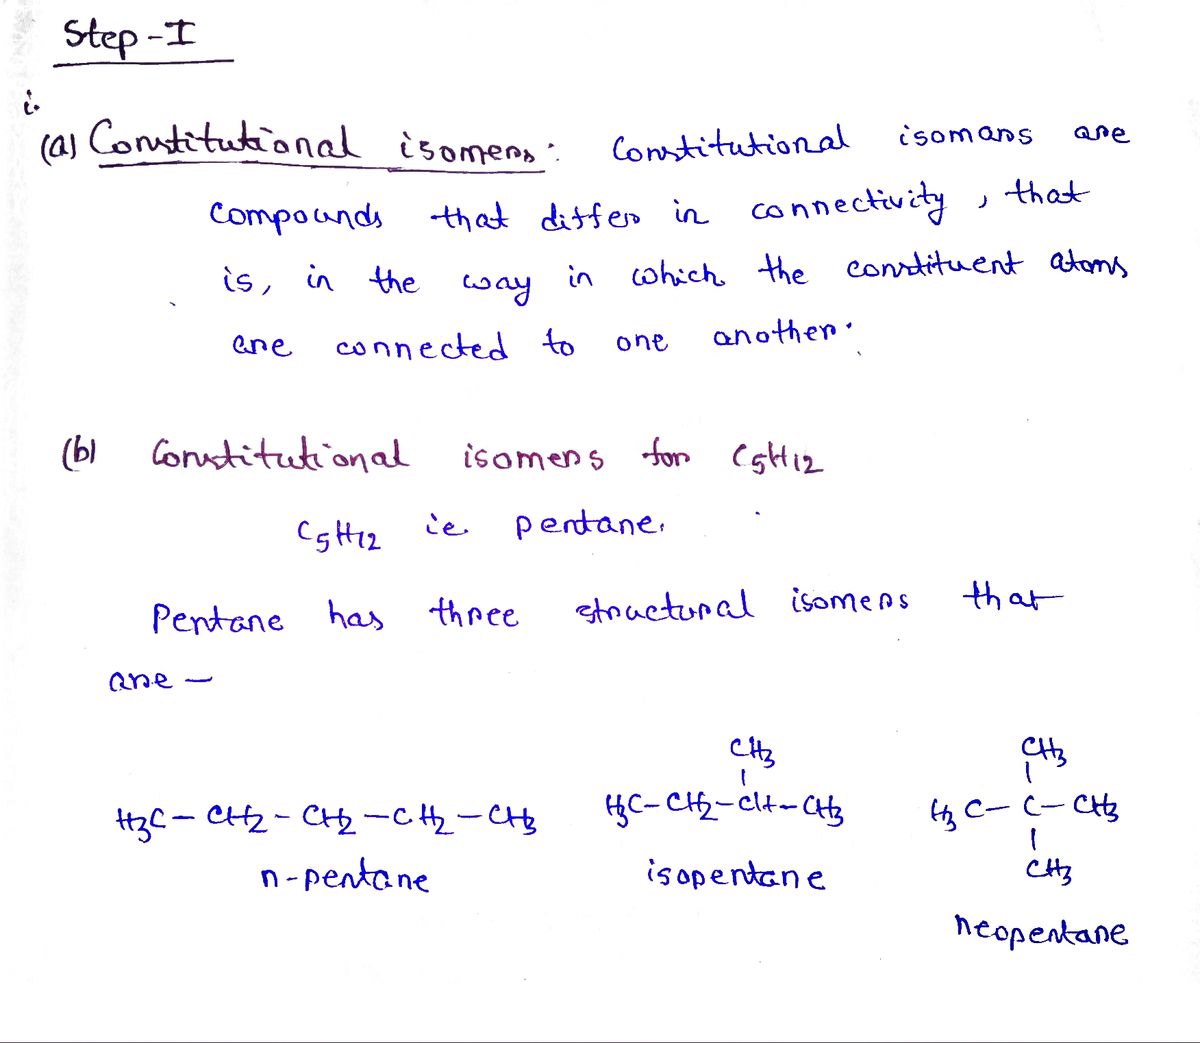 Step-I
i.
(a) Constitutional isomers: Constitutional isomars are
compounds that differ in connectivity, that
is, in the way in which the constituent atoms
are connected to one another.
(b) Constitutional isomers for C5H12
C5H12 ie pentane.
Pentane has three structural isomers that
are —
CH3 CH3
H3C-CH2-CH2-CH2-CH3 H3C-CH2-CH-CH3 H3C-C-CH3
CH3
n-pentane isopentane
neopentane